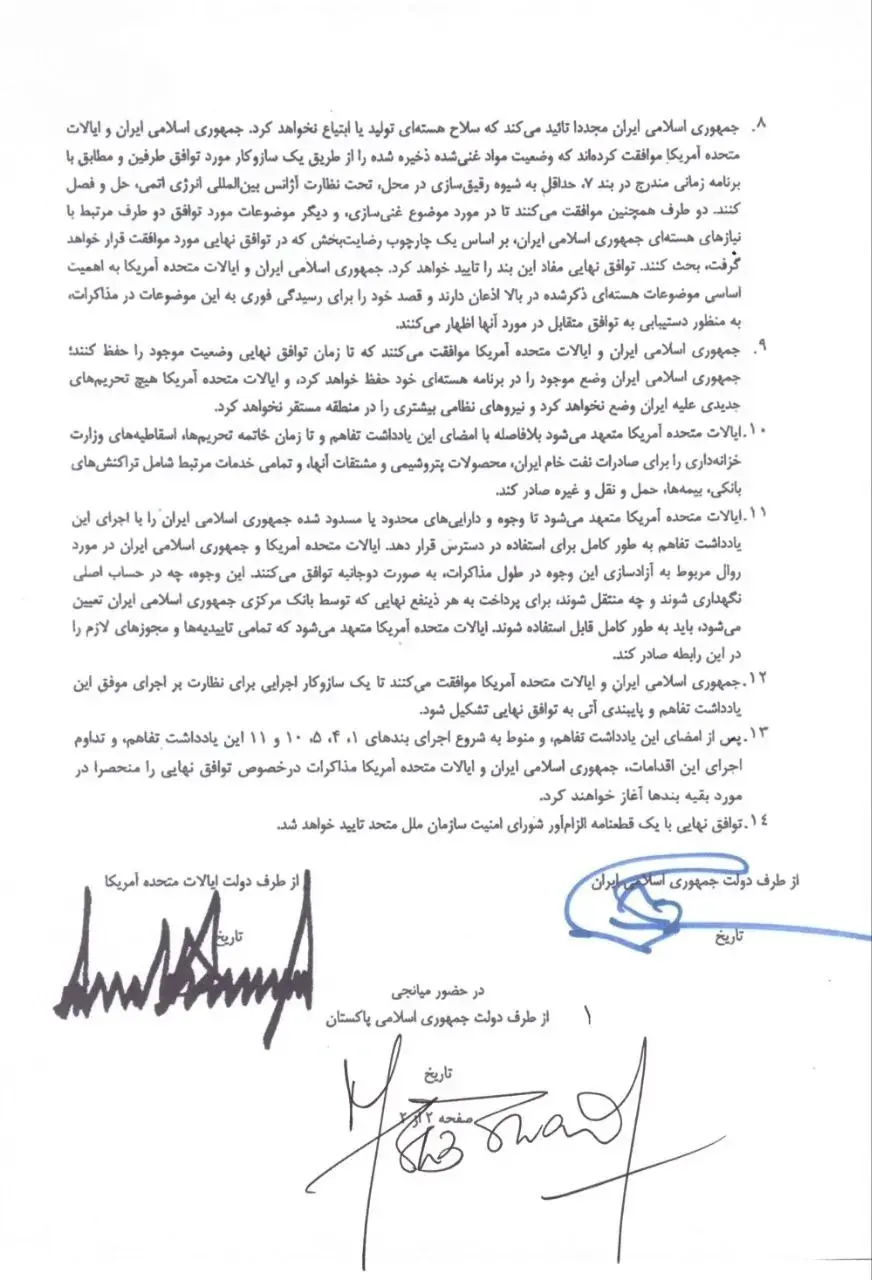 ۸. جمهوری اسلامی ایران مجددا تائید می‌کند که سلاح هسته‌ای تولید یا ابتیاع نخواهد کرد. جمهوری اسلامی ایران و ایالات
متحده آمریکا موافقت کرده‌اند که وضعیت مواد غنی‌شده ذخیره شده را از طریق یک سازوکار مورد توافق طرفین و مطابق با
برنامه زمانی مندرج در بند ۷، حداقل به شیوه رقیق‌سازی در محل، تحت نظارت آژانس بین‌المللی انرژی اتمی، حل و فصل
کنند. دو طرف همچنین موافقت می‌کنند تا در مورد موضوع غنی‌سازی، و دیگر موضوعات مورد توافق دو طرف مرتبط با
نیازهای هسته‌ای جمهوری اسلامی ایران، بر اساس یک چارچوب رضایت‌بخش که در توافق نهایی مورد موافقت قرار خواهد
گرفت، بحث کنند. توافق نهایی مفاد این بند را تایید خواهد کرد. جمهوری اسلامی ایران و ایالات متحده آمریکا به اهمیت
اساسی موضوعات هسته‌ای ذکرشده در بالا اذعان دارند و قصد خود را برای رسیدگی فوری به این موضوعات در مذاکرات،
به منظور دستیابی به توافق متقابل در مورد آنها اظهار می‌کنند.
۹. جمهوری اسلامی ایران و ایالات متحده آمریکا موافقت می‌کنند که تا زمان توافق نهایی وضعیت موجود را حفظ کنند؛
جمهوری اسلامی ایران وضع موجود را در برنامه هسته‌ای خود حفظ خواهد کرد، و ایالات متحده آمریکا هیچ تحریم‌های
جدیدی علیه ایران وضع نخواهد کرد و نیروهای نظامی بیشتری را در منطقه مستقر نخواهد کرد.
۱۰. ایالات متحده آمریکا متعهد می‌شود بلافاصله با امضای این یادداشت تفاهم و تا زمان خاتمه تحریم‌ها، اسقاطیه‌های وزارت
خزانه‌داری را برای صادرات نفت خام ایران، محصولات پتروشیمی و مشتقات آنها، و تمامی خدمات مرتبط شامل تراکنش‌های
بانکی، بیمه‌ها، حمل و نقل و غیره صادر کند.
۱۱. ایالات متحده آمریکا متعهد می‌شود تا وجوه و دارایی‌های محدود یا مسدود شده جمهوری اسلامی ایران را با اجرای این
یادداشت تفاهم به طور کامل برای استفاده در دسترس قرار دهد. ایالات متحده آمریکا و جمهوری اسلامی ایران در مورد
روال مربوط به آزادسازی این وجوه در طول مذاکرات، به صورت دوجانبه توافق می‌کنند. این وجوه، چه در حساب اصلی
نگهداری شوند و چه منتقل شوند، برای پرداخت به هر ذینفع نهایی که توسط بانک مرکزی جمهوری اسلامی ایران تعیین
می‌شود، باید به طور کامل قابل استفاده شوند. ایالات متحده آمریکا متعهد می‌شود که تمامی تاییدیه‌ها و مجوزهای لازم را
در این رابطه صادر کند.
۱۲. جمهوری اسلامی ایران و ایالات متحده آمریکا موافقت می‌کنند تا یک سازوکار اجرایی برای نظارت بر اجرای موفق این
یادداشت تفاهم و پایبندی آتی به توافق نهایی تشکیل شود.
۱۳. پس از امضای این یادداشت تفاهم، و منوط به شروع اجرای بندهای ۱، ۴، ۵، ۱۰ و ۱۱ این یادداشت تفاهم، و تداوم
اجرای این اقدامات، جمهوری اسلامی ایران و ایالات متحده آمریکا مذاکرات درخصوص توافق نهایی را منحصرا در
مورد بقیه بندها آغاز خواهند کرد.
۱۴. توافق نهایی با یک قطعنامه الزام‌آور شورای امنیت سازمان ملل متحد تایید خواهد شد.
از طرف دولت جمهوری اسلامی ایران
از طرف دولت ایالات متحده آمریکا
تاریخ
تاریخ
در حضور میانجی
۱ از طرف دولت جمهوری اسلامی پاکستان
تاریخ
صفحه ۲ از ۲